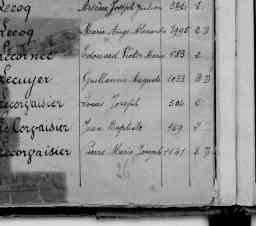 Lecoq Arsène Joseph Julien 346 E
Lecoq Marie Ange Alexandre 1990 E D
Lecornec Edouard Victor Marie 583 E
Lecuyer Guillaume Auguste 1033 B D
Lecorgaisier Louis Joseph 506 E
Lecorgaisier Jean Baptiste 169 E
Lecorgaisier Pierre Marie Joseph 1141 E D
26